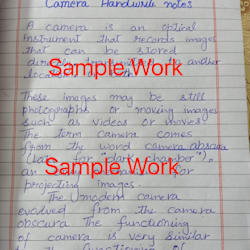 Camera Handwritte notes
A camera is an optical
instrument that records images
that can be stored
directly, transmitted to another
location, or both.
Sample Work
These images may be still
photographs or moving images
such as videos or movies
The term camera comes
from the word camera obscura
Sample Work
(Latin for "dark chamber"),
an
for
projecting images.
The modern camera
evolved from the camera
obscura. The functioning
of camera is very similar
functioning of